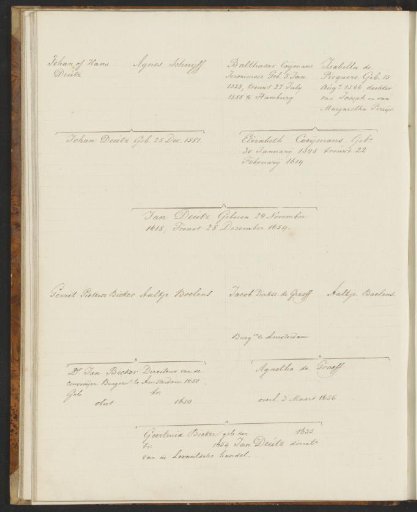 Johan of Hans
Deutz
Agnes Schuyff
Balthasar Coymans
Jeronimus Geb. 5 Jan
1555, trouwt 27 July
1588 te Hamburg
Isabella de
Picquere, Geb. 15
Aug. 1566 dochter
van Joseph en van
Margaretha
Johan Deutz Geb. 25 Dec. 1581.
Elisabeth Coeymans Geb.
30 Januarij 1595 trouwt 22
February 1614
Jan Deutz Geboren 24 November
1618, Trouwt 28 December 1654.
Gerrit Pieterse Bicker
Aaltje Boelens
Jacob Dirkse de Graeff
Aaltje Boelens.
Burg.r te Amsterdam
Dr. Jan Bicker Directeur van de
Burger te Amsterdam 1650
Geb.
obiit 1650
Agnetha de Graeff
overl. 3 Maart 1656
Geertruid Bicker geb. den 1635
tr. 1654 Jan Deutz direct.r
van de Levantsche handel.